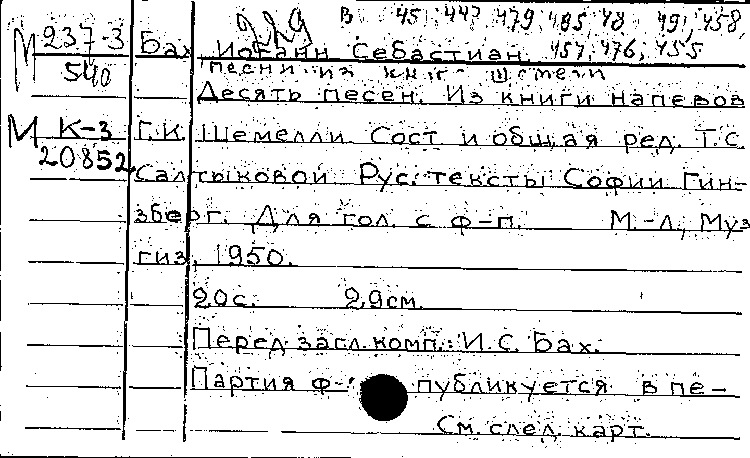 229 В 451, 447, 479, 485, 48, 491, 458,
М 237-3 Бах, Иоганн Себастиан. 457, 476, 455
540 песни из книг Шемели
Десять песен. Из книги напевов
М К-3 Г.К. Шемелли. Сост и общая ред. Т.С.
20852 Салтыковой Рус. тексты Софии Гин-
зберг. Для гол. с ф-п. М.-Л., Муз
гиз, 1950.
20с. 29см.
Перед загл. комп.: И.С. Бах.
Партия ф- публикуется в пе-
См. след. карт.